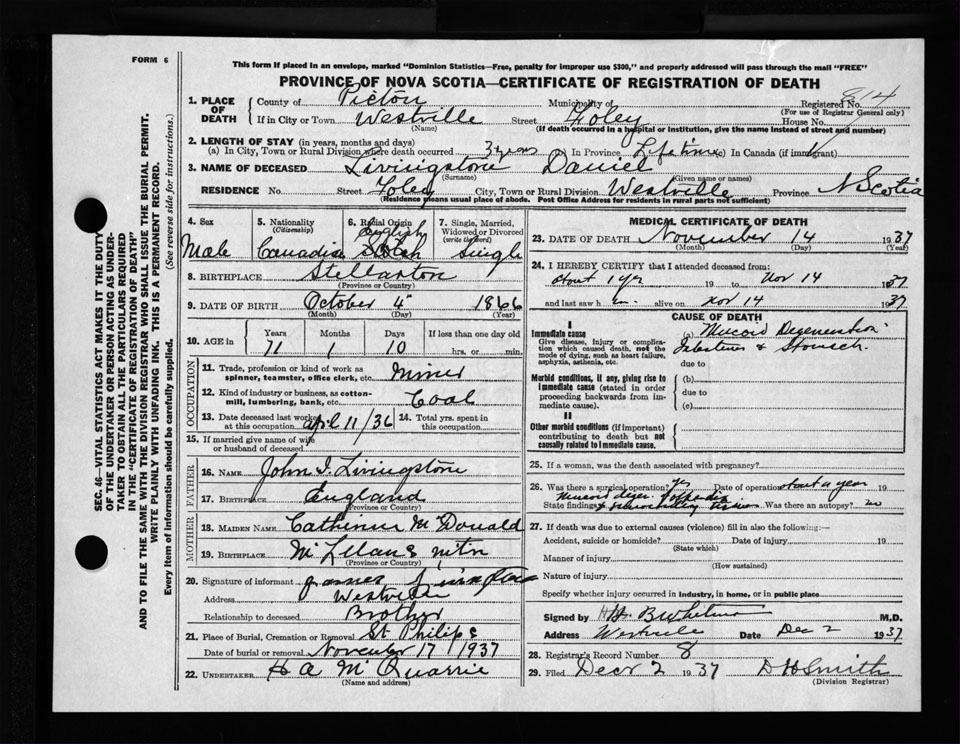 FORM 6
This form if placed in an envelope, marked "Dominion Statistics—Free, penalty for improper use $300," and properly addressed will pass through the mail "FREE"
PROVINCE OF NOVA SCOTIA—CERTIFICATE OF REGISTRATION OF DEATH
1. PLACE OF DEATH County of Pictou Municipality of Registered No. 814
(For use of Registrar General only)
If in City or Town Westville Street Foley House No.
(Name) (If death occurred in a hospital or institution, give the name instead of street and number)
2. LENGTH OF STAY (in years, months and days)
(a) In City, Town or Rural Division where death occurred 3 years (b) In Province Lifetime (c) In Canada (if immigrant)
3. NAME OF DECEASED Livingstone Daniel
(Surname) (Given name or names)
RESIDENCE No. Street Foley City, Town or Rural Division Westville Province N Scotia
(Residence means usual place of abode. Post Office Address for residents in rural parts not sufficient)
4. Sex 5. Nationality (Citizenship) 6. Racial Origin 7. Single, Married, Widowed or Divorced (write the word)
Male Canadian English Scotch Single
8. BIRTHPLACE Stellarton
(Province or Country)
9. DATE OF BIRTH October 4 1866
(Month) (Day) (Year)
10. AGE in Years Months Days If less than one day old
71 1 10 hrs. or min.
OCCUPATION
11. Trade, profession or kind of work as spinner, teamster, office clerk, etc. Miner
12. Kind of industry or business, as cotton-mill, lumbering, bank, etc. Coal
13. Date deceased last worked at this occupation April 11/36 14. Total yrs. spent in this occupation
15. If married give name of wife or husband of deceased
FATHER
16. NAME John J. Livingstone
17. BIRTHPLACE England
(Province or Country)
MOTHER
18. MAIDEN NAME Catherine McDonald
19. BIRTHPLACE McLellans mtn
(Province or Country)
20. Signature of informant James Livingstone
Address Westville
Relationship to deceased Brother
21. Place of Burial, Cremation or Removal St Philips
Date of burial or removal November 17 1937
22. UNDERTAKER H A McQuarrie
(Name and address)
MEDICAL CERTIFICATE OF DEATH
23. DATE OF DEATH November 14 1937
(Month) (Day) (Year)
24. I HEREBY CERTIFY that I attended deceased from:
about 1 yr 19 to Nov 14 1937
and last saw h im alive on Nov 14 1937
CAUSE OF DEATH
I
Immediate cause (a) Mucoid Degeneration
Give disease, injury or complication which caused death, not the mode of dying, such as heart failure, asphyxia, asthenia, etc.
Intestines & Stomach
due to
Morbid conditions, if any, giving rise to immediate cause (stated in order proceeding backwards from immediate cause).
(b)
due to
(c)
II
Other morbid conditions (if important) contributing to death but not causally related to immediate cause.
25. If a woman, was the death associated with pregnancy?
26. Was there a surgical operation? Yes Date of operation about a year 19
State findings Mucoid degen. Was there an autopsy? no
27. If death was due to external causes (violence) fill in also the following:—
Accident, suicide or homicide? Date of injury 19
(State which)
Manner of injury
(How sustained)
Nature of injury
Specify whether injury occurred in industry, in home, or in public place
Signed by B Whitman M.D.
Address Westville Date Dec 2 1937
28. Registrar's Record Number 8
29. Filed Decr 2 1937 D H Smith
(Division Registrar)
SEC. 46—VITAL STATISTICS ACT MAKES IT THE DUTY
OF THE UNDERTAKER OR PERSON ACTING AS UNDERTAKER
TO OBTAIN ALL THE PARTICULARS REQUIRED
IN THE "CERTIFICATE OF REGISTRATION OF DEATH"
AND TO FILE THE SAME WITH THE DIVISION REGISTRAR WHO SHALL ISSUE THE BURIAL PERMIT.
WRITE PLAINLY WITH UNFADING INK. THIS IS A PERMANENT RECORD.
Every item of Information should be carefully supplied. (See reverse side for instructions.)